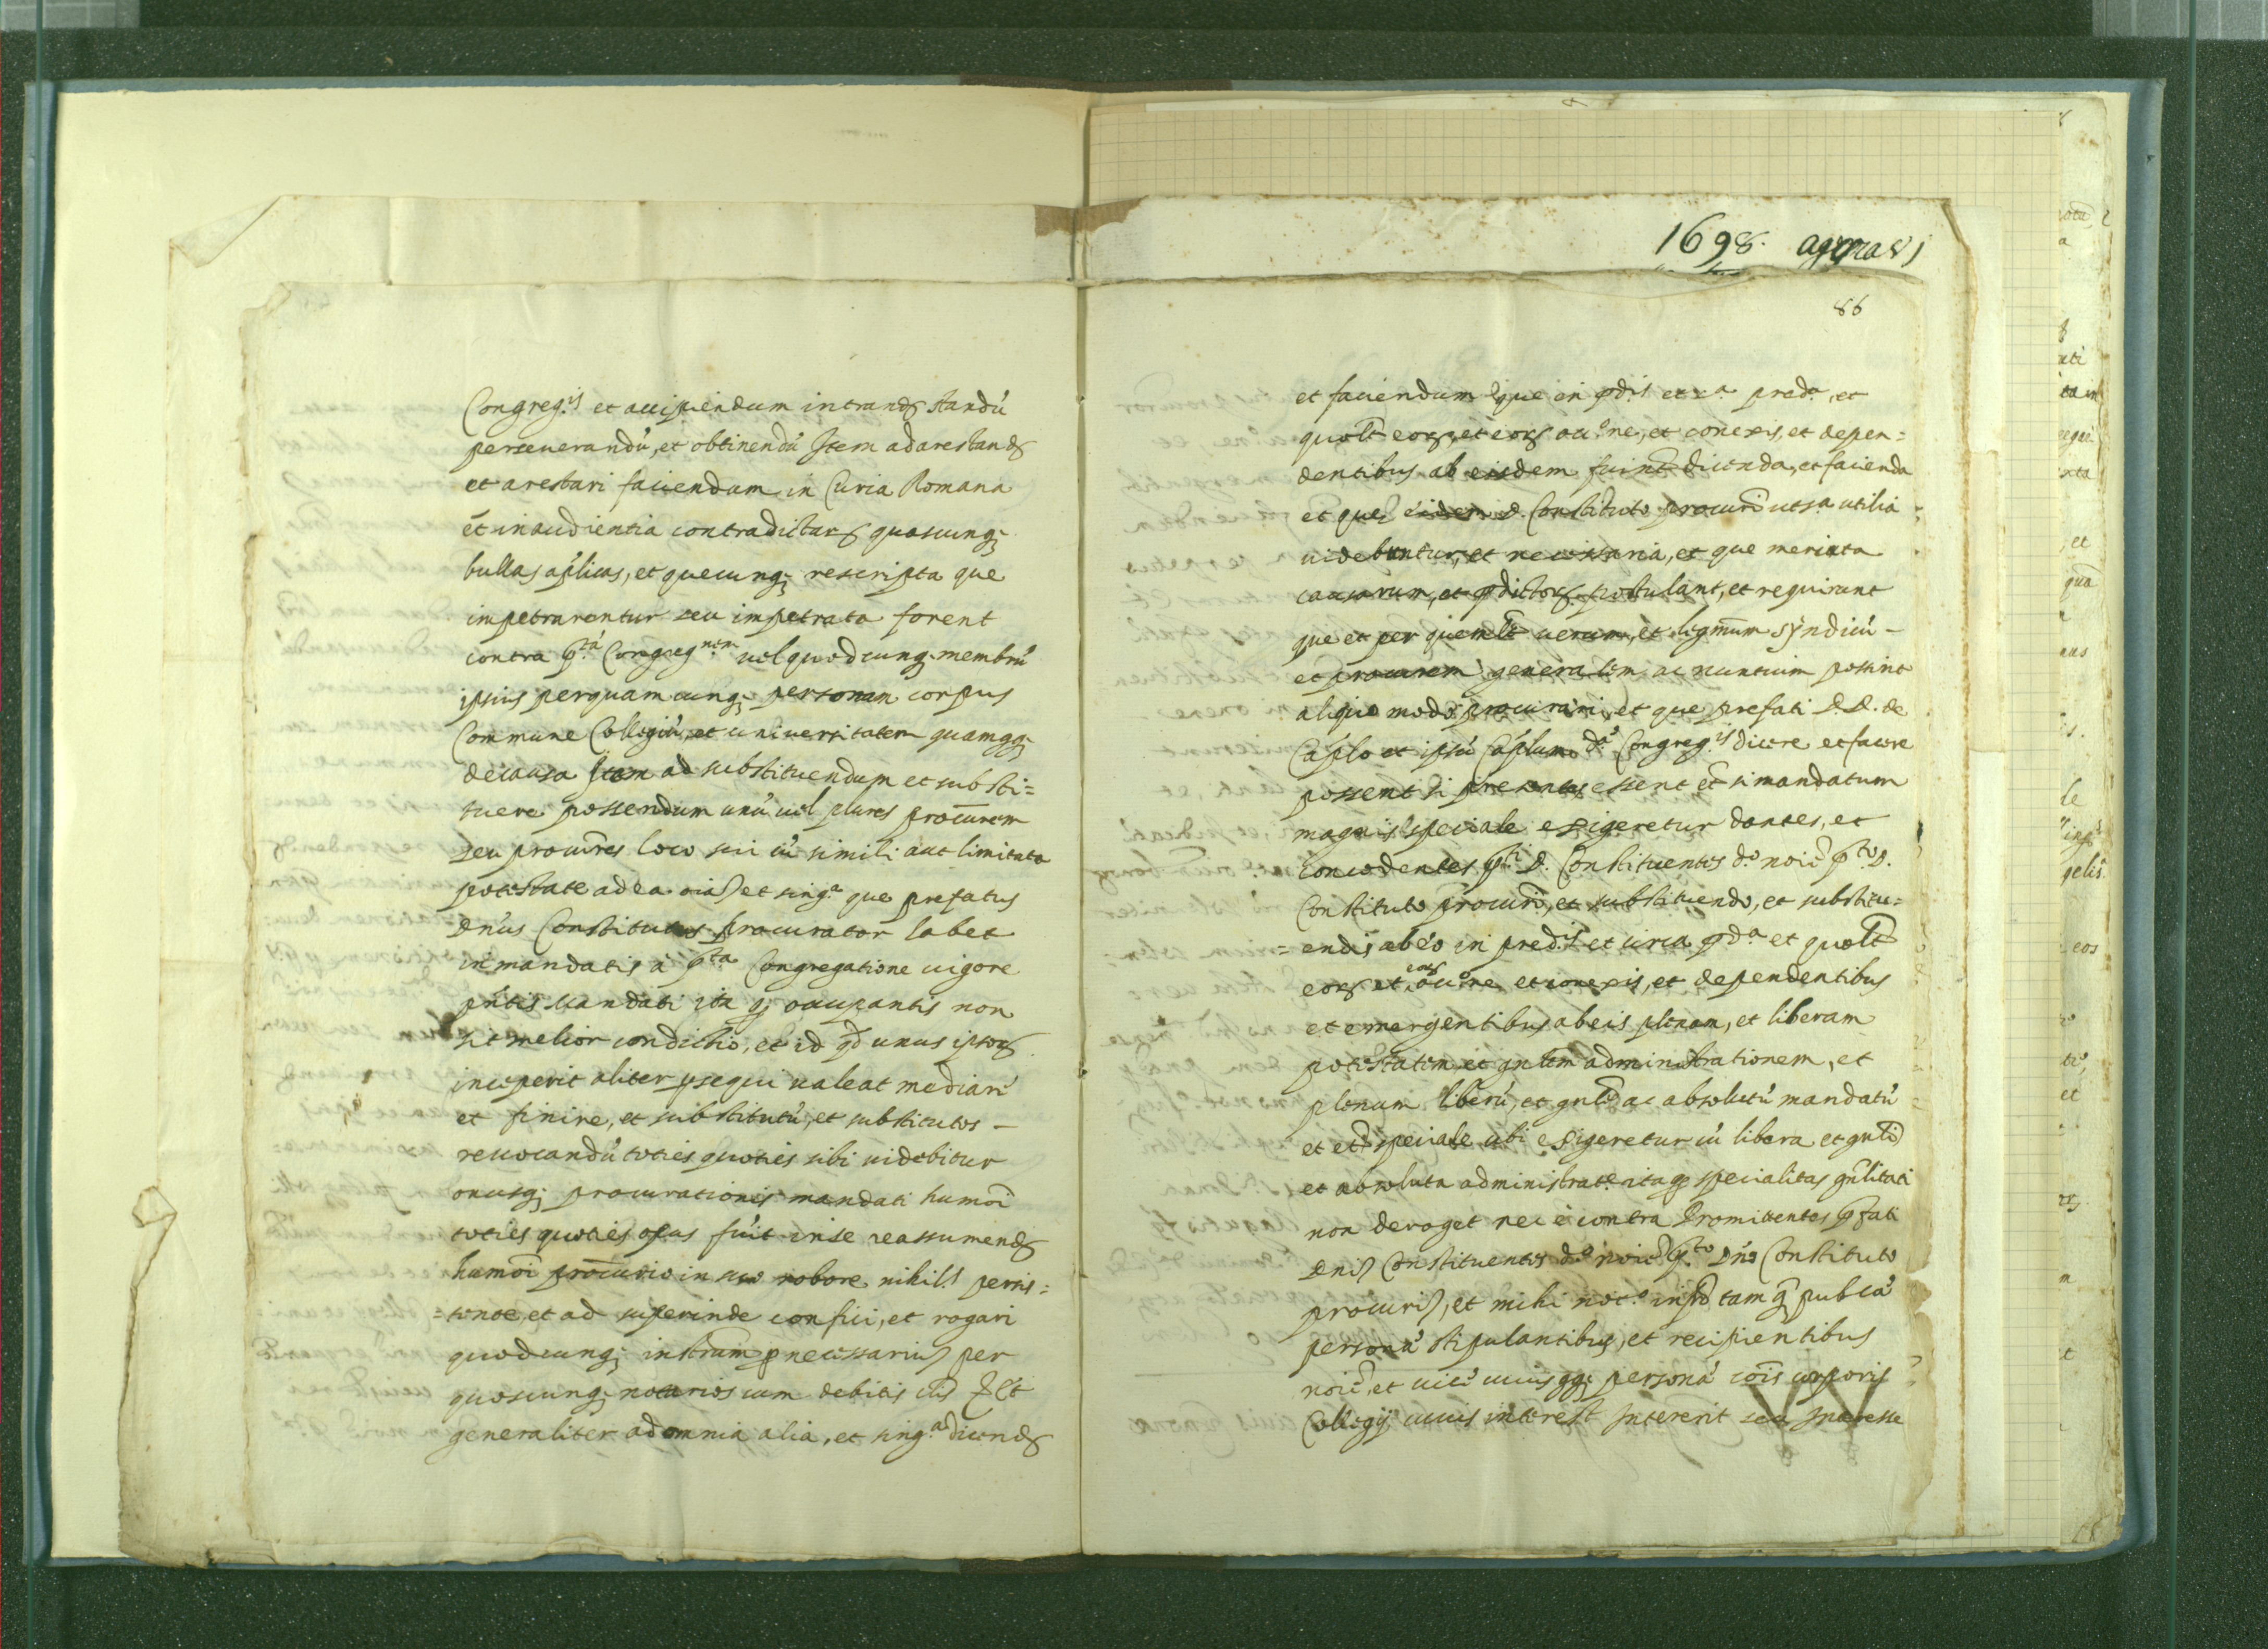 Congreg.is et accipiendum intrand. standũ
perseuerandũ, et obtinendũ Item ad arestand.
et arestari faciendum in Curia Romana
et in audientia contradictar. quascunq;
bullas aplicas, et quecunq; rescripta que
impetrarentur seu impetrata forent
contra p.tá Congreg.nem uel quodcunq; membrũ
ipsius per quamcunq; personam corpus
Commune Collegiũ, et uniuersitatem quamqq;
de causa Item ad substituendum et substi=
tuere possendum unũ uel plures procũrem
seu procũres loco sui cũ simili aut limitata
potestate ad ea oia et sing.a que prefatus
Dnus Constitutus procurator habet
in mandatis á p.ta Congregatione uigore
pñtis mandati ita q; occupantis non
sit melior condictio, et id qd unus ipsor.
inceperit aliter psequi ualeat mediari
et finire, et substitutũ, et substitutos -
reuocandũ toties quoties sibi uidebitur
onusq; procurationis mandati humõi
toties quoties opus fuit in se reassumend.
humõi procũrio in suo robore nihil. persis=
=tente et ad super inde confici, et rogari
quodcunq; instrum p necessarius per
quoscunq; notarios cum debitis clis Et
generaliter ad omnia alia, et sing.a dicend.
1698.
86
et faciendum que in pd.is et c.a pred.a, et
quolt eor. et eor. occ.ne, et conexis, et depen=
dentibus ab eisdem fuint dicenda, et facienda
et que eidem D. Constituto procurí uts.a utilia
uidebuntur, et necessaria, et que merita
causarum, et pdictor. postulant, et requirunt
que et per quemlt uerum, et legmum syndicũ -
et procurem generalem, ac nuntium possint
aliquo modo procurari, et que prefati D.D. de
Caplo et ipsũ Caplum d.ae Congreg.is dicere et facere
possent si presentes essent et si mandatum
magis speciale exigeretur dantes, et
concedentes p.ti D. Constituentes d.o noie p.to D.
Constituto procurí, et substituendo, et substitu=
=endis ab eo in pred.is et circa pd.a et quolt
eor. et eor. occ.ne et conexis, et dependentibus
et emergentibus ab eis plenam, et liberam
potestatem et gnlem administrationem, et
plenum liberũ, et gnle ac absolutũ mandatũ
et et speciale ubi exigeretur cũ libera et gnli
et absoluta administrat.e ita q specialitas gnlitati
non deroget nec è contra Promittentes pfati
Dni Constituentes d.o noie p.to Dno Constituto
procuri, et mihi not.o infd tam q pubca
persona stipulantibus, et recipientibus
noie, et uice cuiusqq; persona cois corporis
Collegij cuius interest Intererit seu Interesse